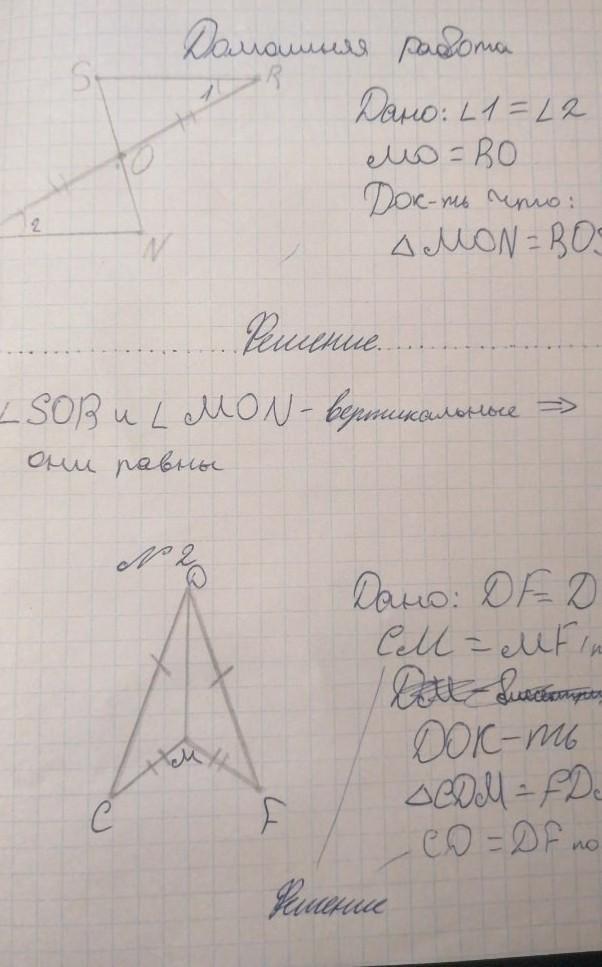 Домашняя работа
S R
1
Дано: ∠1 = ∠2
MO = RO
O
Док-ть что:
2
N
△MON = ROS
Решение
∠SOR и ∠MON - вертикальные ⇒
они равны
№2
D
Дано: DF = D
CM = MF
ДОК-ть
M
△CDM = FD
C F
CD = DF по
Решение